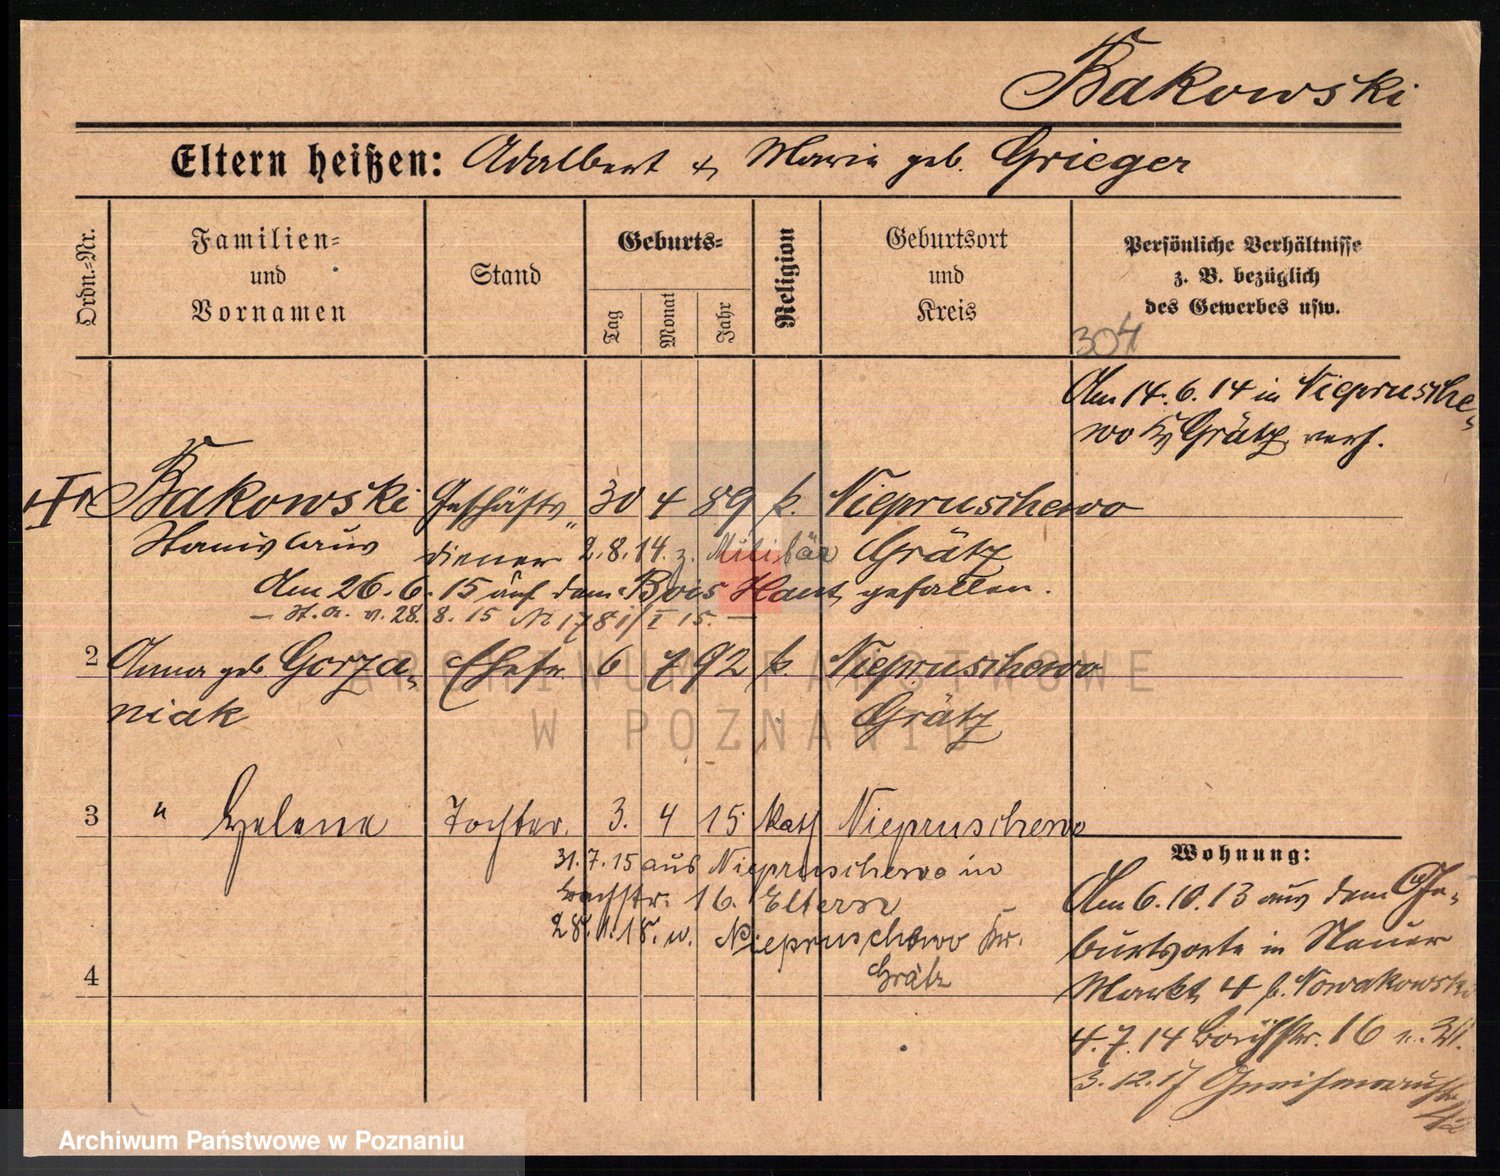 Bakowski
Eltern heißen: Adalbert & Marie geb. Grieger
Ordn.=Nr.
Familien=
und
Vornamen
Stand
Geburts=
Tag
Monat
Jahr
Religion
Geburtsort
und
Kreis
Persönliche Verhältnisse
z. B. bezüglich
des Gewerbes usw.
304
Am 14. 6. 14 in Niepruschewo
Kr Grätz verh.
Bakowski Geschäfts 30 4 89 k. Niepruschewo
Stanislaus diener 2. 8. 14. z. Militär Grätz
Am 26. 6. 15 auf dem Bois Haut gefallen.
28. 8. 15 Nr 1781/I 15. —
2 Anna geb Gorza- Ehefr. 6 7 92 k. Niepruschewo
niak Grätz
3 " Helene Tochter. 3. 4 15 kath Niepruschewo
31. 7. 15 aus Niepruschewo in
Bachstr. 16. Eltern
28. 1. 18. n. Niepruschewo Kr.
Grätz
4
Wohnung:
Am 6. 10. 13 aus dem Ge-
burtsorte in Neuer
Markt 4 b. Nowakowski
4. 7. 14 Bachstr. 16
3. 12. 17 Gneisenaustr
ARCHIWUM PAŃSTWOWE
W POZNANIU
Archiwum Państwowe w Poznaniu